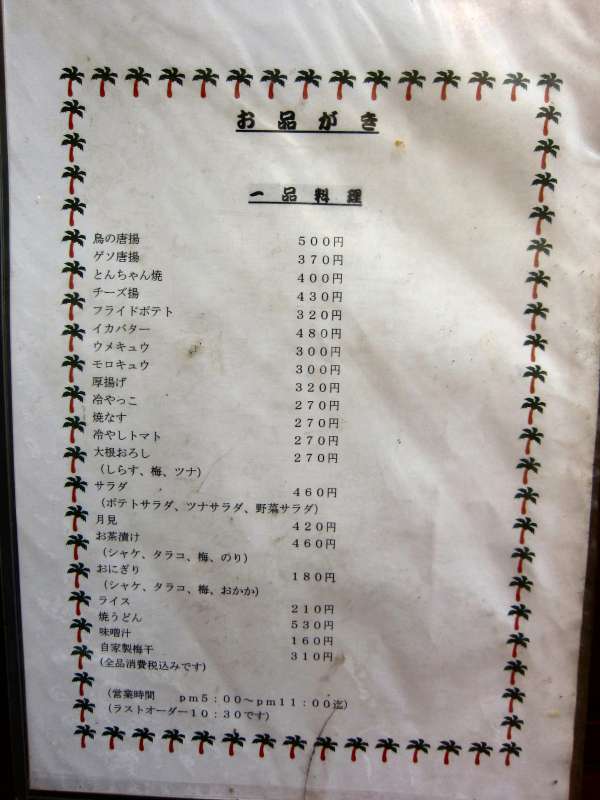 お品がき
一品料理
鳥の唐揚 500円
ゲソ唐揚 370円
とんちゃん焼 400円
チーズ揚 430円
フライドポテト 320円
イカバター 480円
ウメキュウ 300円
モロキュウ 300円
厚揚げ 320円
冷やっこ 270円
焼なす 270円
冷やしトマト 270円
大根おろし 270円
(しらす、梅、ツナ)
サラダ 460円
(ポテトサラダ、ツナサラダ、野菜サラダ)
月見 420円
お茶漬け 460円
(シャケ、タラコ、梅、のり)
おにぎり 180円
(シャケ、タラコ、梅、おかか)
ライス 210円
焼うどん 530円
味噌汁 160円
自家製梅干 310円
(全品消費税込みです)
(営業時間 pm5:00~pm11:00迄)
(ラストオーダー10:30です)